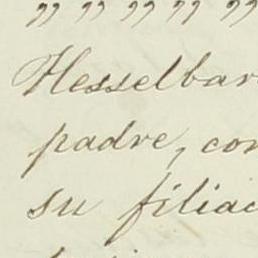 " " " " "
Hesselbar
padre, con
su filiac